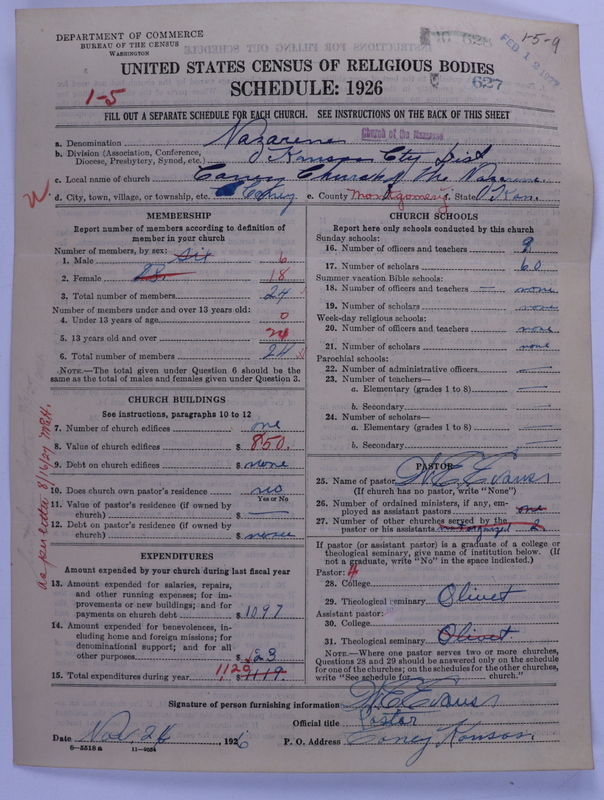 DEPARTMENT OF COMMERCE
BUREAU OF THE CENSUS
WASHINGTON
628
FEB 12 1927
1-5-9
UNITED STATES CENSUS OF RELIGIOUS BODIES
SCHEDULE: 1926
627
1-5
FILL OUT A SEPARATE SCHEDULE FOR EACH CHURCH. SEE INSTRUCTIONS ON THE BACK OF THIS SHEET
a. Denomination Nazarene Church of the Nazarene
b. Division (Association, Conference, Diocese, Presbytery, Synod, etc.) Kansas City Dist
c. Local name of church Caney Church of the Nazarene.
d. City, town, village, or township, etc. Caney e. County Montgomery State Kan.
MEMBERSHIP
Report number of members according to definition of
member in your church
Number of members, by sex:
1. Male Six 6
2. Female 28. 18
3. Total number of members 24
Number of members under and over 13 years old:
4. Under 13 years of age 0
5. 13 years old and over 24
6. Total number of members 24
NOTE.—The total given under Question 6 should be
same as the total of males and females given under Question 3.
CHURCH BUILDINGS
See instructions, paragraphs 10 to 12
7. Number of church edifices one
8. Value of church edifices $ 850.
9. Debt on church edifices $ none
10. Does church own pastor's residence no
Yes or No
11. Value of pastor's residence (if owned by
church) $ —
12. Debt on pastor's residence (if owned by
church) $ none
as per letter 8/16/27 M&H.
EXPENDITURES
Amount expended by your church during last fiscal year
13. Amount expended for salaries, repairs,
and other running expenses; for im-
provements or new buildings; and for
payments on church debt $ 1097
14. Amount expended for benevolences, in-
cluding home and foreign missions; for
denominational support; and for all
other purposes $ 23
15. Total expenditures during year 1120 $ 1119.
CHURCH SCHOOLS
Report here only schools conducted by this church
Sunday schools:
16. Number of officers and teachers 9
17. Number of scholars 60
Summer vacation Bible schools:
18. Number of officers and teachers — none
19. Number of scholars none
Week-day religious schools:
20. Number of officers and teachers none
21. Number of scholars none
Parochial schools:
22. Number of administrative officers —
23. Number of teachers—
a. Elementary (grades 1 to 8) —
b. Secondary —
24. Number of scholars—
a. Elementary (grades 1 to 8) —
b. Secondary —
PASTOR
25. Name of pastor W. E. Evans
(If church has no pastor, write "None")
26. Number of ordained ministers, if any, em-
ployed as assistant pastors one
27. Number of other churches served by the
pastor or his assistants
If pastor (or assistant pastor) is a graduate of a college or
theological seminary, give name of institution below. (If
not a graduate, write "No" in the space indicated.)
Pastor:
28. College
29. Theological seminary Olivet
Assistant pastor:
30. College
31. Theological seminary Olivet
NOTE.—Where one pastor serves two or more churches,
Questions 28 and 29 should be answered only on the schedule
for one of the churches; on the schedules for the other churches,
write "See schedule for church."
Signature of person furnishing information W. E. Evans
Official title Pastor
Date Nov. 26, 1926 P. O. Address Caney Kansas.
8—5518a 11—9034